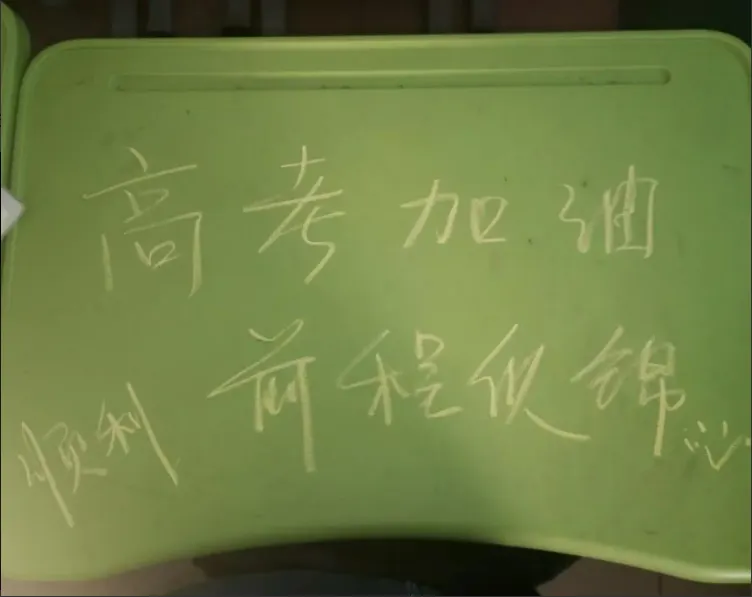 高考加油
前程似锦
顺利